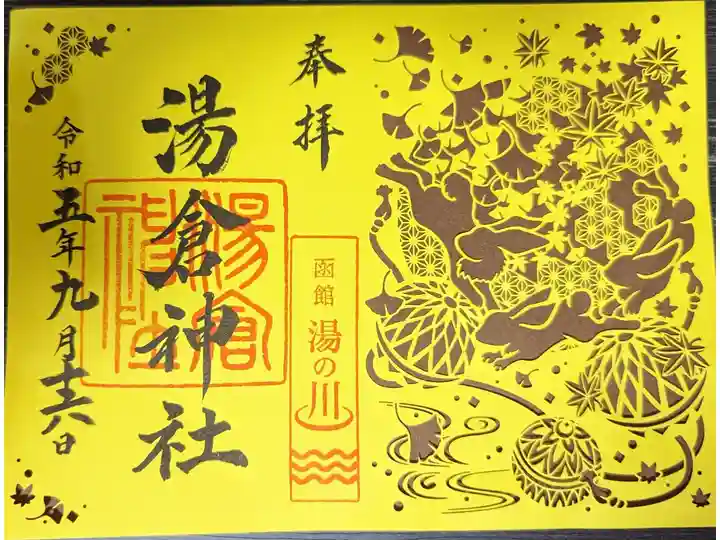 奉拝
函館 湯の川
湯倉神社
湯倉神社
令和五年九月十六日